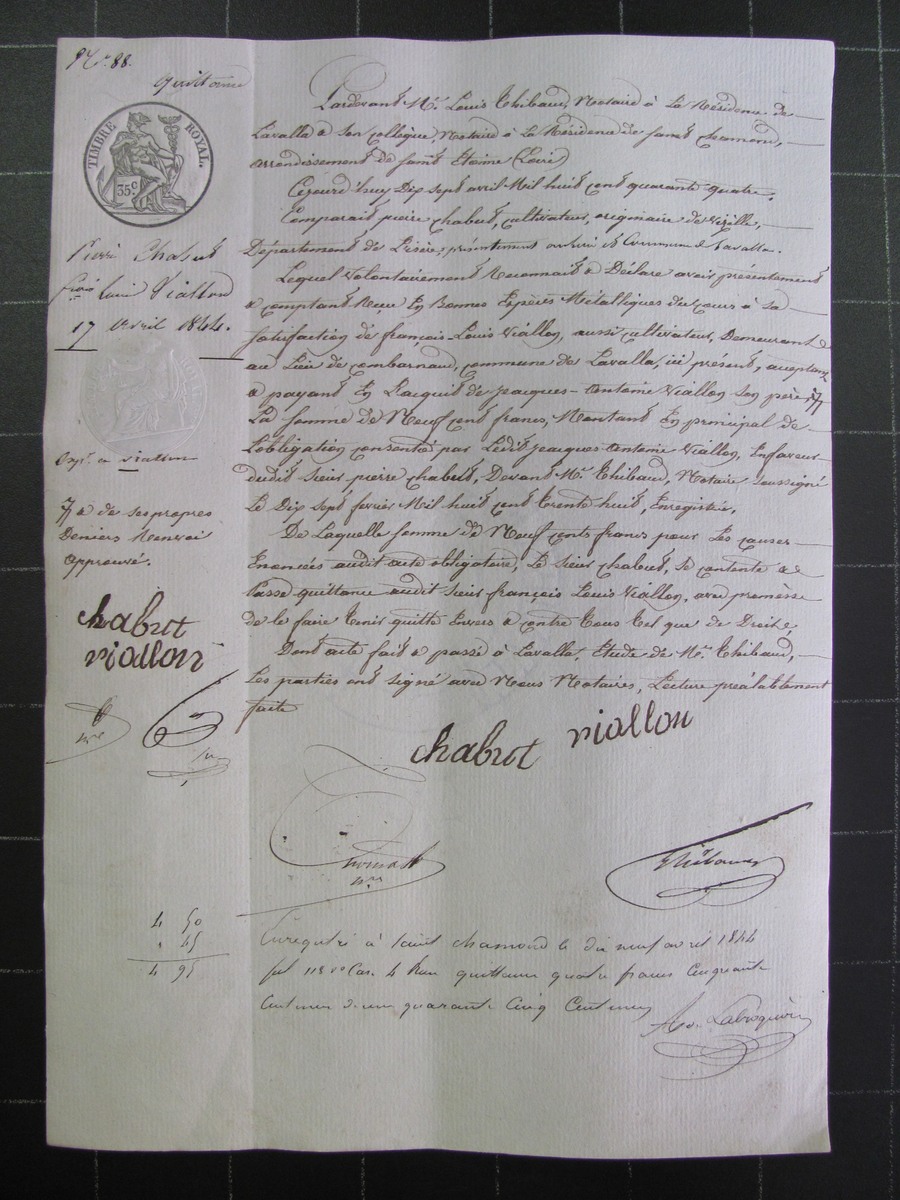 N.° 88.
quittance
TIMBRE ROYAL.
35 c
Pierre Chabut
fçois Louis Viallon
17 avril 1844.
Exp.on a viallon
77 & de ses propres
Deniers Renvoi
approuvé.
chabut
viallon
Pardevant M.e Louis Thibaud, Notaire à La Résidence de
Lavalla & son collègue, Notaire à La Résidence de saint chamond,
arrondissement de saint Etienne (Loire)
Cejourd'huy Dix sept avril Mil huit cent quarante quatre,
Comparait pierre chabut, cultivateur, originaire de Vizille,
Département de L'isère, présentement en la Commune de Lavalla.
Lequel Volontairement Reconnait & Déclare avoir présentement
& comptant Reçu En Bonnes Espèces Métalliques du cours à sa
satisfaction de françois-Louis Viallon, aussi cultivateur, Demeurant
au Lieu de combarnaud, commune de Lavalla, ici présent, acceptant
& payant En L'acquit de jacques-antoine Viallon son père 77
La somme de Neuf cent francs, Montant En principal de
L'obligation consentie par Ledit jacques-antoine Viallon, En faveur
dudit sieur pierre chabut, Devant M.e Thibaud, Notaire soussigné
Le Dix sept février Mil huit cent trente huit, Enregistrée.
De Laquelle somme de Neuf cents francs pour Les causes
Enoncées audit acte obligatoire, Le sieur chabut, se contente &
passe quittance audit sieur françois Louis Viallon, avec promesse
de le faire Tenir quitte Envers & contre Tous Tel que de Droit,
Dont acte fait & passé à Lavalla, Etude de M.e Thibaud,
Les parties ont signé avec Nous Notaires, Lecture préalablement
faite
chabut viallon
Thibaud
4 50
45
4 95
Enregistré à saint chamond le dix neuf avril 1844
fol 118 v.o Cas. 4 Reçu quittance quatre francs Cinquante
Centimes dixme quarante Cinq Centimes